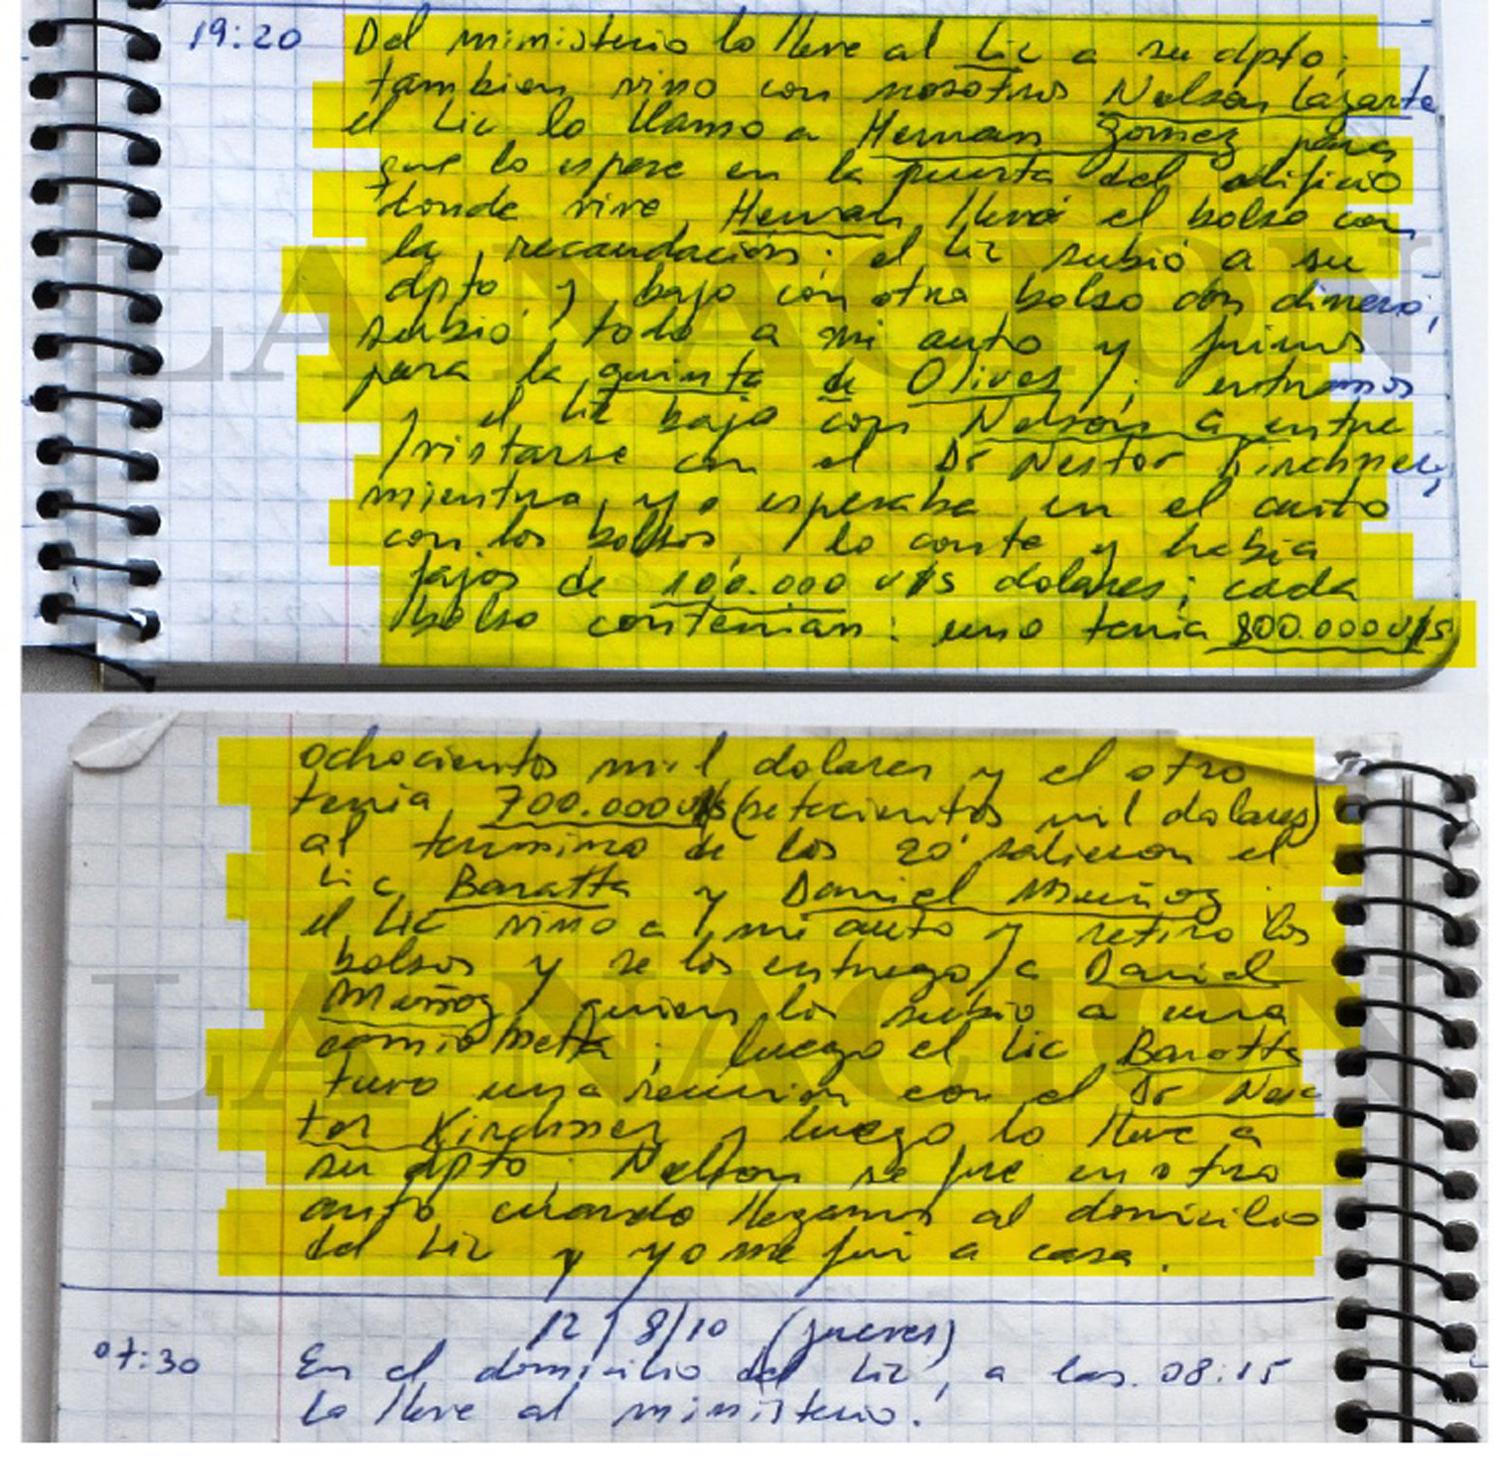 19:20 Del ministerio lo lleve al Lic a su dpto;
tambien vino con nosotros Nelson Lazarte
el Lic lo llamo a Hernan Gomez para
que lo espere en la puerta del edificio
donde vive, Hernan llevó el bolso con
la recaudación; el Lic subió a su
dpto y bajo con otro bolso con dinero;
subió todo a mi auto y fuimos
para la quinta de Olivos; entramos
y el Lic bajo con Nelson a entre
vistarse con el Dr Nestor Kirchner,
mientras yo esperaba en el auto
con los bolsos, lo conte y habia
fajos de 100.000 u$s dolares; cada
bolso contenian: uno tenia 800.000 u$s
ochocientos mil dolares y el otro
tenia 700.000 u$s (setecientos mil dolares)
al termino de los 20' salieron el
Lic Baratta y Daniel Muñoz
el Lic vino a mi auto y retiro los
bolsos y se los entrego a Daniel
Muñoz quien los subio a una
camioneta; luego el Lic Baratta
tuvo una reunion con el Dr Nes
tor Kirchner y luego lo lleve a
su dpto, Nelson se fue en otro
auto cuando llegamos al domicilio
del Lic y yo me fui a casa.
12/8/10 (jueves)
07:30 En el domicilio del Lic, a las 08:15
lo lleve al ministerio.
LA NACION
LA NACION